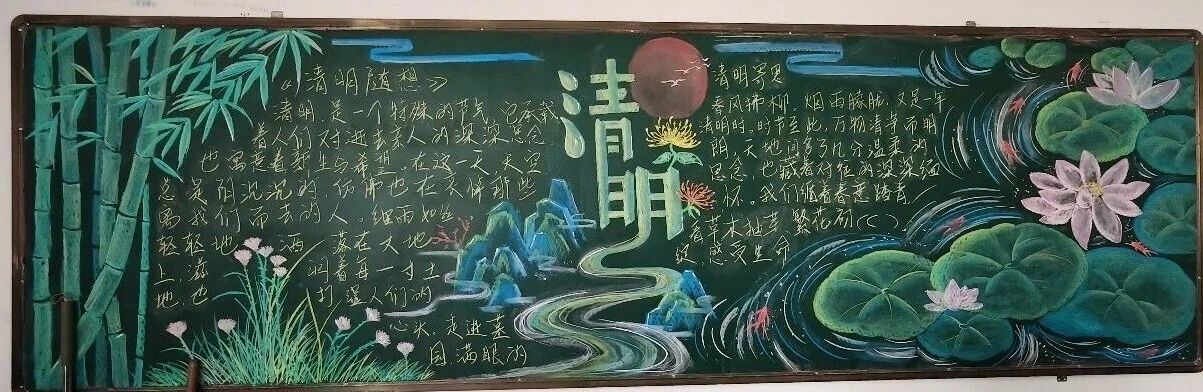 《清明随想》
清明,是一个特殊的节气,它承载
着人们对逝去亲人的深深思念
也寓意着新生与希望。在这一天,天空
总是阴沉沉的,仿佛也在哀悼那些
离我们而去的人。细雨如丝
轻轻地洒落在大地
上,滋润着每一寸土
地,也打湿人们的
心头,走进墓
园满眼的
清明
清明寄思
春风拂柳,烟雨朦胧,又是一年
清明时。时节至此,万物清净而明
朗,天地间多了几分温柔的
思念,也藏着对征的深深缅
怀。我们循着春意踏青
看草木抽芽、繁花初( )
绽感受生命